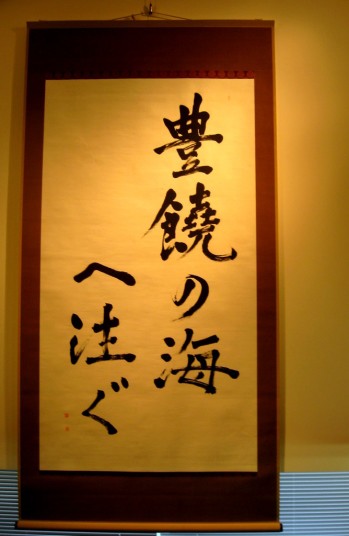 豊饒の海
へ注ぐ